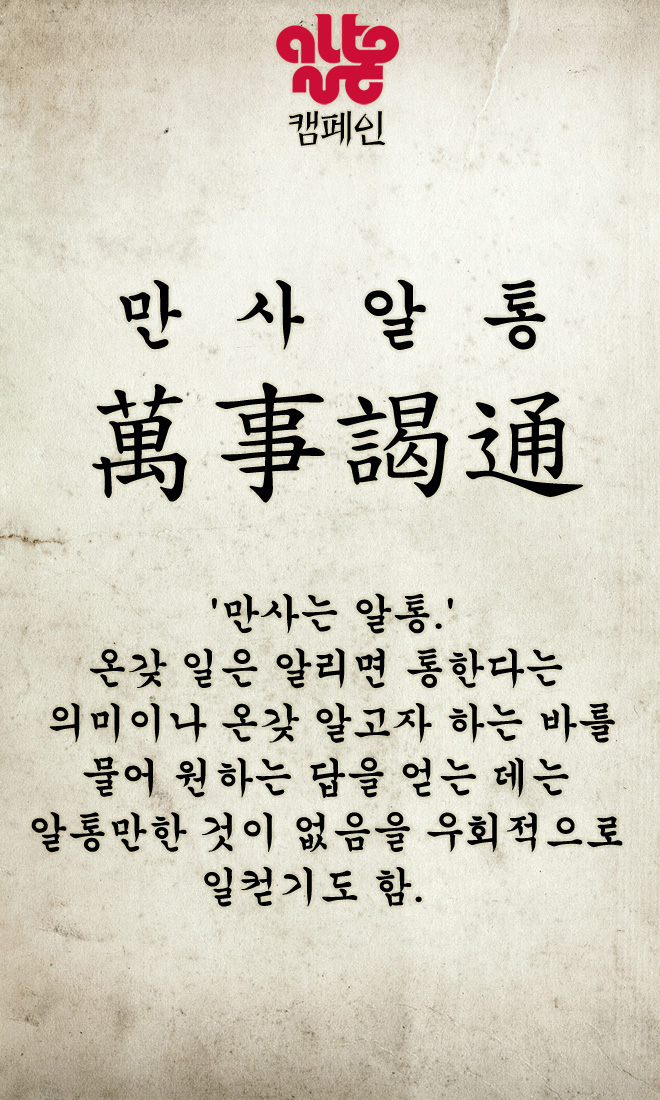 alto
캠페인
만 사 알 통
萬事謁通
'만사는 알통.'
온갖 일은 알리면 통한다는
의미이나 온갖 알고자 하는 바를
물어 원하는 답을 얻는 데는
알통만한 것이 없음을 우회적으로
일컫기도 함.